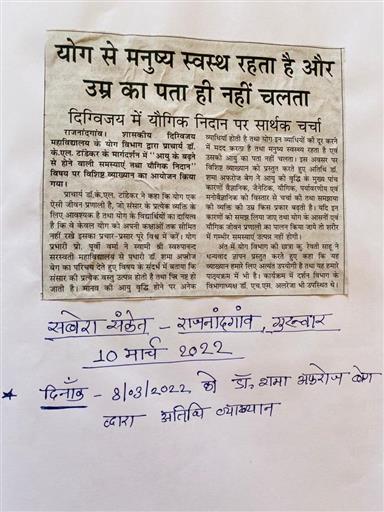 योग से मनुष्य स्वस्थ रहता है और
उम्र का पता ही नहीं चलता
दिग्विजय में यौगिक निदान पर सार्थक चर्चा
राजनांदगांव। शासकीय दिग्विजय
महाविद्यालय के योग विभाग द्वारा प्राचार्य डॉ.
के.एल. टांडेकर के मार्गदर्शन में "आयु के बढ़ने
से होने वाली समस्याएं तथा यौगिक निदान"
विषय पर विशिष्ट व्याख्यान का आयोजन किया
गया।
प्राचार्य डॉ.के.एल. टांडेकर ने कहा कि योग एक
ऐसी जीवन प्रणाली है, जो संसार के प्रत्येक व्यक्ति के
लिए आवश्यक है तथा योग के विद्यार्थियों का दायित्व
है कि वे केवल योग को अपनी कक्षाओं तक सीमित
नहीं रखे इसका प्रचार-प्रसार पूरे विश्व में करें। योग
प्रभारी प्रो. पूर्वी वर्मा ने स्वामी श्री स्वरुपानन्द
सरस्वती महाविद्यालय से पधारी डॉ. शमा अफरोज
बेग का परिचय देते हुए विषय के संदर्भ में बताया कि
संसार की प्रत्येक वस्तु उत्पन्न होती है तथा फिर नष्ट हो
जाती है। मानव की आयु वृद्धि होने पर अनेक
व्याधियाँ होती है तथा योग इन व्याधियों को दूर करने
में मदद करता है तथा मनुष्य स्वस्थ्य रहता है एवं
उसको आयु का पता नहीं चलता। इस अवसर पर
विशिष्ट व्याख्यान को प्रस्तुत करते हुए अतिथि डॉ.
शमा अफरोज बेग ने आयु की वृद्धि के मुख्य पांच
कारणों वैज्ञानिक, जेनेटिक, यौगिक, पर्यावरणीय एवं
मनोवैज्ञानिक को विस्तार से चर्चा की तथा समझाया
की व्यक्ति की उम्र किस प्रकार बढ़ती है। यदि इन
कारणों को समझ लिया जाए तथा योग के आसनों एवं
यौगिक जीवन प्रणाली का पालन किया जाये तो शरीर
में गम्भीर समस्याएं उत्पन्न नहीं होगी।
अंत में योग विभाग की छात्रा कु. रेवती साहू ने
धन्यवाद ज्ञापन प्रस्तुत करते हुए कहा कि यह
व्याख्यान हमारे लिए अत्यंत उपयोगी है तथा यह हमारे
पाठ्यक्रम में भी है। कार्यक्रम में दर्शन विभाग के
विभागाध्यक्ष डॉ. एच.एस. अलरेजा भी उपस्थित थे।
सबेरा संकेत - राजनांदगांव, गुरुवार
10 मार्च 2022
* दिनाँक - 8/03/2022 को डॉ. शमा अफरोज बेग
द्वारा अतिथि व्याख्यान